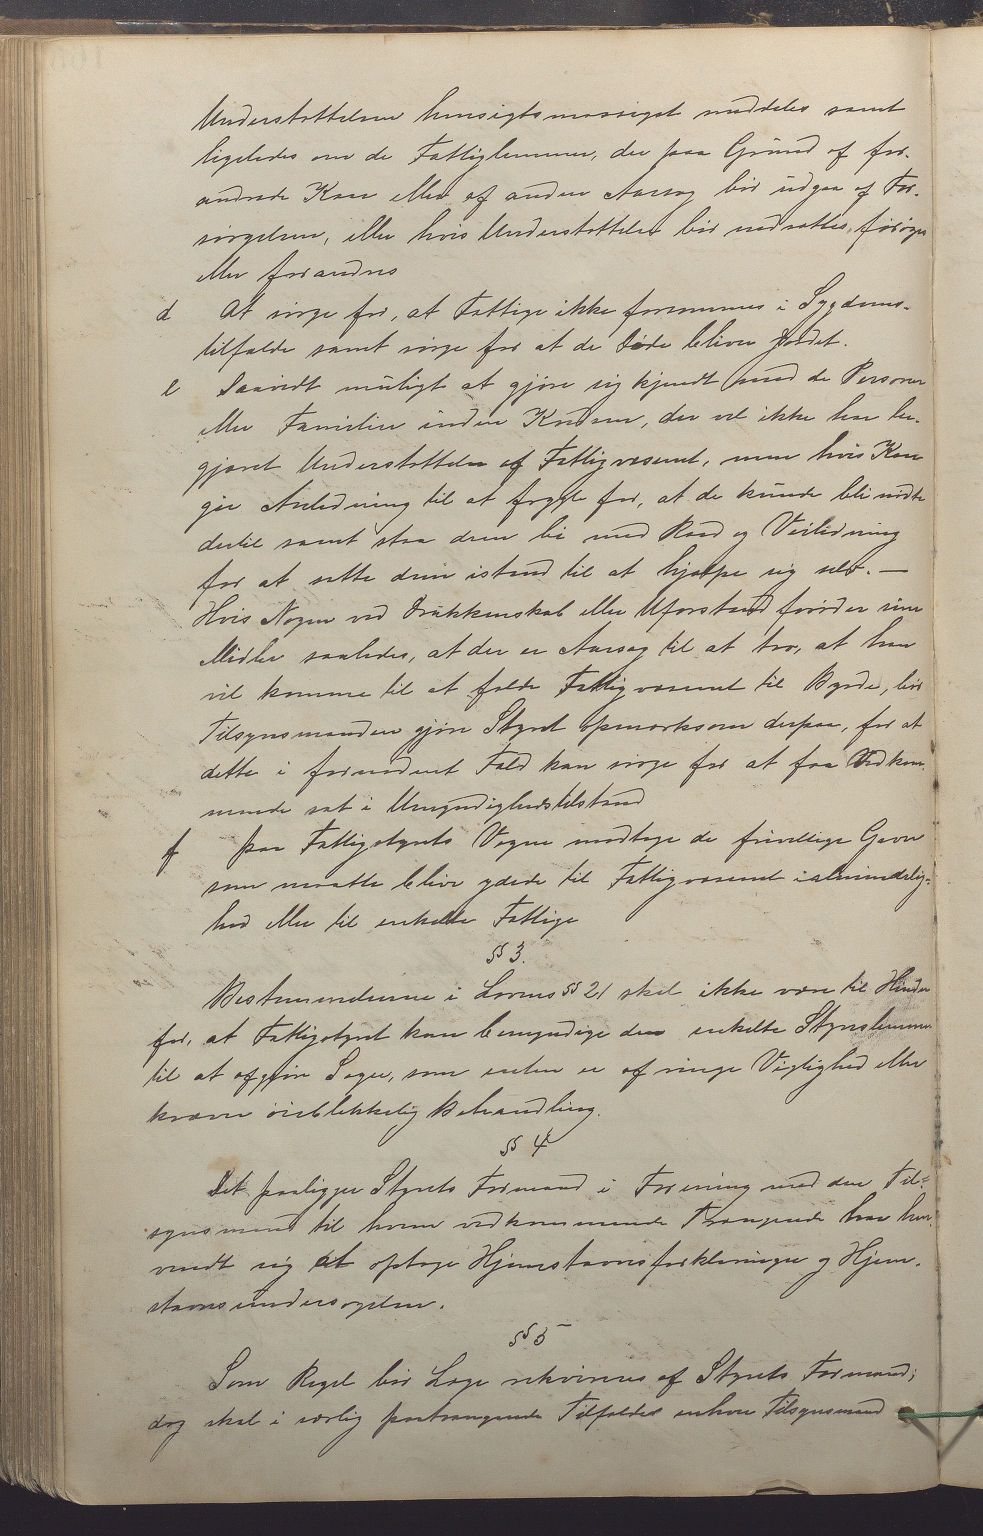 Understøttelsen hensigtsmæssigst meddeles samt
ligeledes om de Fattiglemmer, der paa Grund af for-
andrede Kaar eller af anden Aarsag bør udgaa af For-
sørgelsen, eller hvis Understøttelse bør nedsættes, forøges
eller forandres
d At sørge for, at Fattige ikke forsømmes i Sygdoms-
tilfælde samt sørge for at de Døde bliver jordet.
e Saavidt muligt at gjøre sig kjendt med de Personer
eller Familier inden Kredsen, der vel ikke har be-
gjæret Understøttelse af Fattigvæsenet, men hvis Kaar
gir Anledning til at frygte for, at de kunde bli nødte
dertil samt staa dem bi med Raad og Veiledning
for at sætte dem istand til at hjælpe sig selv. —
Hvis Nogen ved Drukkenskab eller Uforstand forøder sine
Midler saaledes, at der er Aarsag til at tro, at han
vil komme til at falde Fattigvæsenet til Byrde, bør
Tilsynsmanden gjøre Styret opmærksom derpaa, for at
dette i fornødent Fald kan sørge for at faa Vedkom-
mende sat i Umyndighedstilstand
f paa Fattigstyrets Vegne modtage de frivillige Gaver
som maatte blive ydede til Fattigvæsenet i almindelig-
hed eller til enkelte Fattige
§§ 3.
Bestemmelserne i Lovens §§ 21 skal ikke være til Hinder
for, at Fattigstyret kan bemyndige den enkelte Styrelsemmer
til at afgjøre Sager, som enten er af ringe Vigtighed eller
kræver øieblikkelig Behandling.
§§ 4
Det paaligger Styrets Formand i Forening med den Til-
synsmand til hvem vedkommende Trængende har hen-
vendt sig at optage Hjemstavnsforklaringer og Hjem-
stavnsundersøgelser.
§§ 5
Som Regel bør Læge rekvireres af Styrets Formand;
dog skal i særlig paatrængende Tilfælde enhver Tilsynsmand